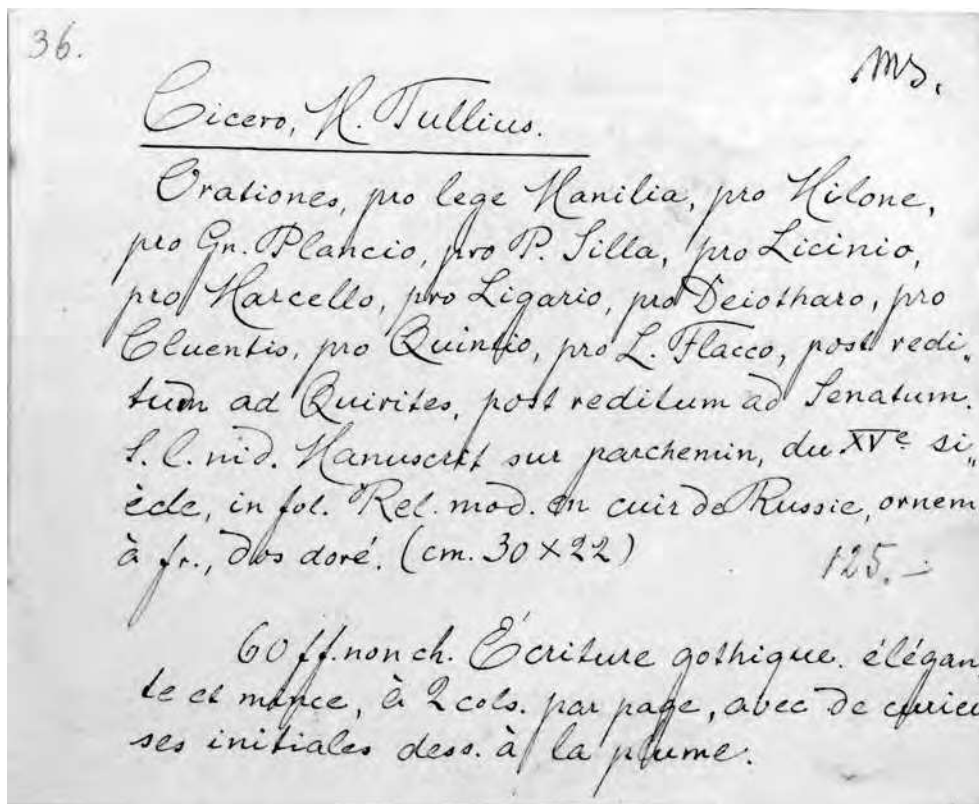 36.
ms.
Cicero, M. Tullius.
Orationes, pro lege Manilia, pro Milone,
pro Gn. Plancio, pro P. Silla, pro Licinio,
pro Marcello, pro Ligario, pro Deiotharo, pro
Cluentio, pro Quintio, pro L. Flacco, post redi„
tum ad Quirites, post reditum ad Senatum.
S. l. ni d. Manuscrit sur parchemin, du XVe si„
ècle, in fol. Rel. mod. en cuir de Russie, ornem
à fr., dos doré. (cm. 30 × 22)
125.-
60 ff. non ch. Écriture gothique élégan
te et mince, à 2 cols. par page, avec de curieu
ses initiales dess. à la plume.